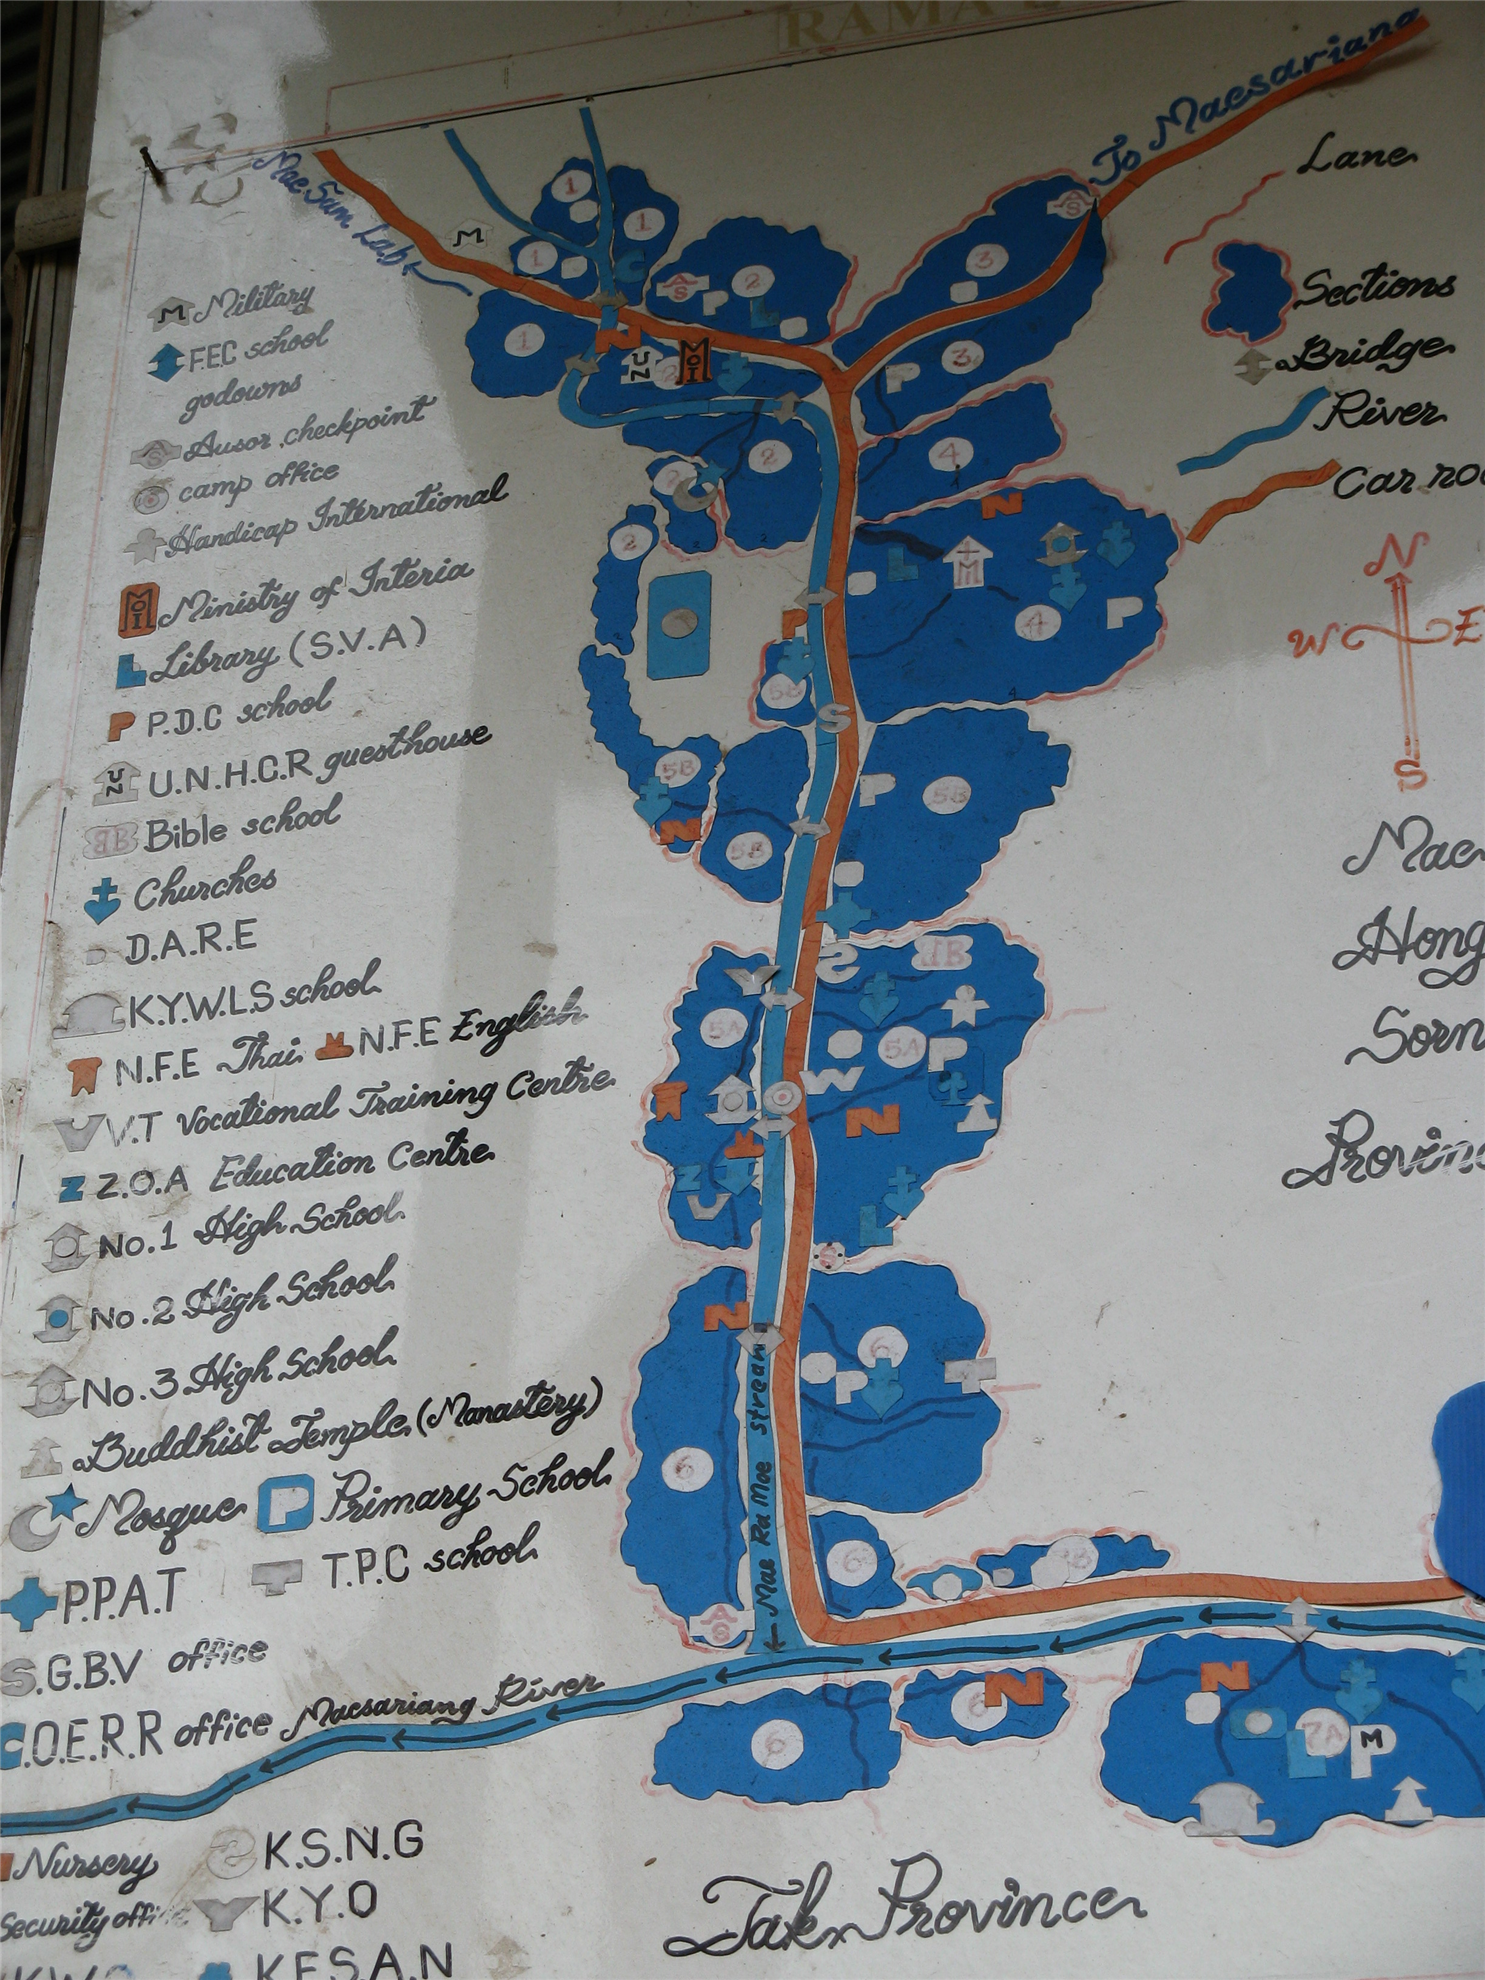 RAMA
To Maesariang
Mae Sam Lab
Lane
Sections
Bridge
River
Car
N
W
E
S
Military
F.E.C school
godowns
Ausor checkpoint
camp office
Handicap International
Ministry of Interia
Library (S.V.A)
P.D.C school
U.N.H.C.R guesthouse
Bible school
Churches
D.A.R.E
K.Y.W.L.S school
N.F.E Thai N.F.E English
V.T Vocational Training Centre
Z.O.A Education Centre
No.1 High School
No.2 High School
No.3 High School
Buddhist Temple (Manastery)
Mosque Primary School
P.P.A.T T.P.C school
S.G.B.V office
C.O.E.R.R office
Maesariang River
Nursery K.S.N.G
Security K.Y.O
K.E.S.A.N
Mae
Hong
Sorn
Mae Ra Moe stream
Tak Province
M
1
1
1
1
2
2
2
3
3
4
4
5B
5B
5B
5B
5A
5A
6
6
6
6
6
7A
UN
MOI